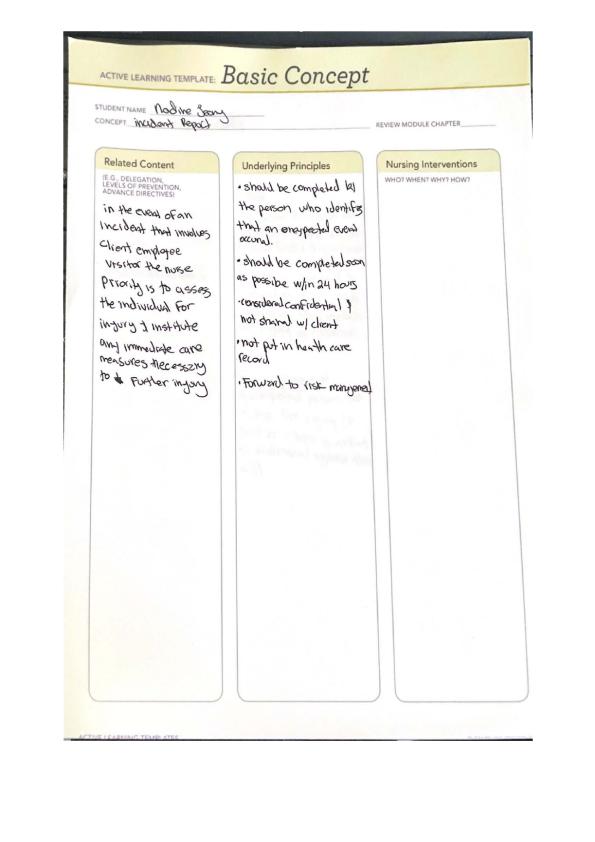 ACTIVE LEARNING TEMPLATE: Basic Concept
STUDENT NAME Nadine
CONCEPT incident Report
REVIEW MODULE CHAPTER
Related Content
(E.G., DELEGATION,
LEVELS OF PREVENTION,
ADVANCE DIRECTIVES)
in the event of an
incident that involves
Client employee
Visitor the nurse
Priority is to assess
the individual for
injury & institute
any immediate care
measures necessary
to ↓ Further injury
Underlying Principles
• should be completed by
the person who identifys
that an unexpected event
occured.
• should be completed soon
as possible w/in 24 hours
• considered confidential &
not shared w/ client
• not put in health care
record
• Forward to risk
Nursing Interventions
WHO? WHEN? WHY? HOW?
ACTIVE LEARNING TEMPLATES